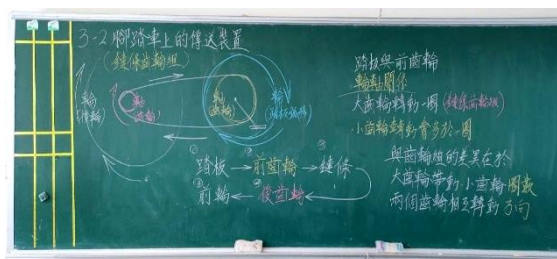 3-2 腳踏車上的傳送裝置
(鏈條齒輪組)
輪
(後輪)
軸
(齒輪)
軸
(齒輪)
輪
(踏板)
① 踏板 → ② 前齒輪 → ③ 鏈條
前輪 ← 後齒輪
踏板與前齒輪
輪軸關係
大齒輪轉動一圈 (鏈條齒輪組)
小齒輪轉動會多於一圈
與齒輪組的差異在於
大齒輪帶動小齒輪圈數
兩個齒輪相互轉動方向